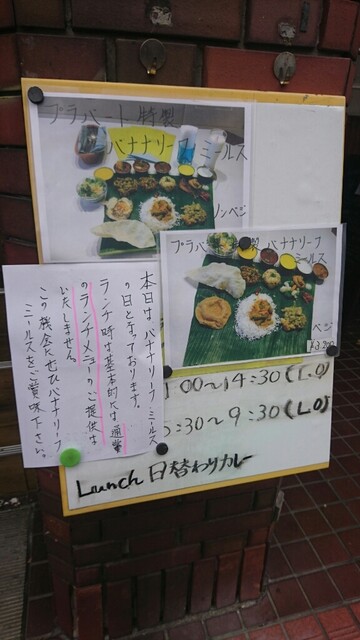 プラバート特製
バナナリーフ ミールス
ノンベジ
バナナリーフ
ミールス
ベジ
本日はバナナリーフミールス
の日となっております。
ランチ時は基本的には通常
のランチメニューのご提供は
いたしません。
この機会にぜひバナナリーフ
ミールスをご賞味下さい。
:00〜14:30(L.O)
:30〜9:30(L.O)
Lunch 日替わりカレー